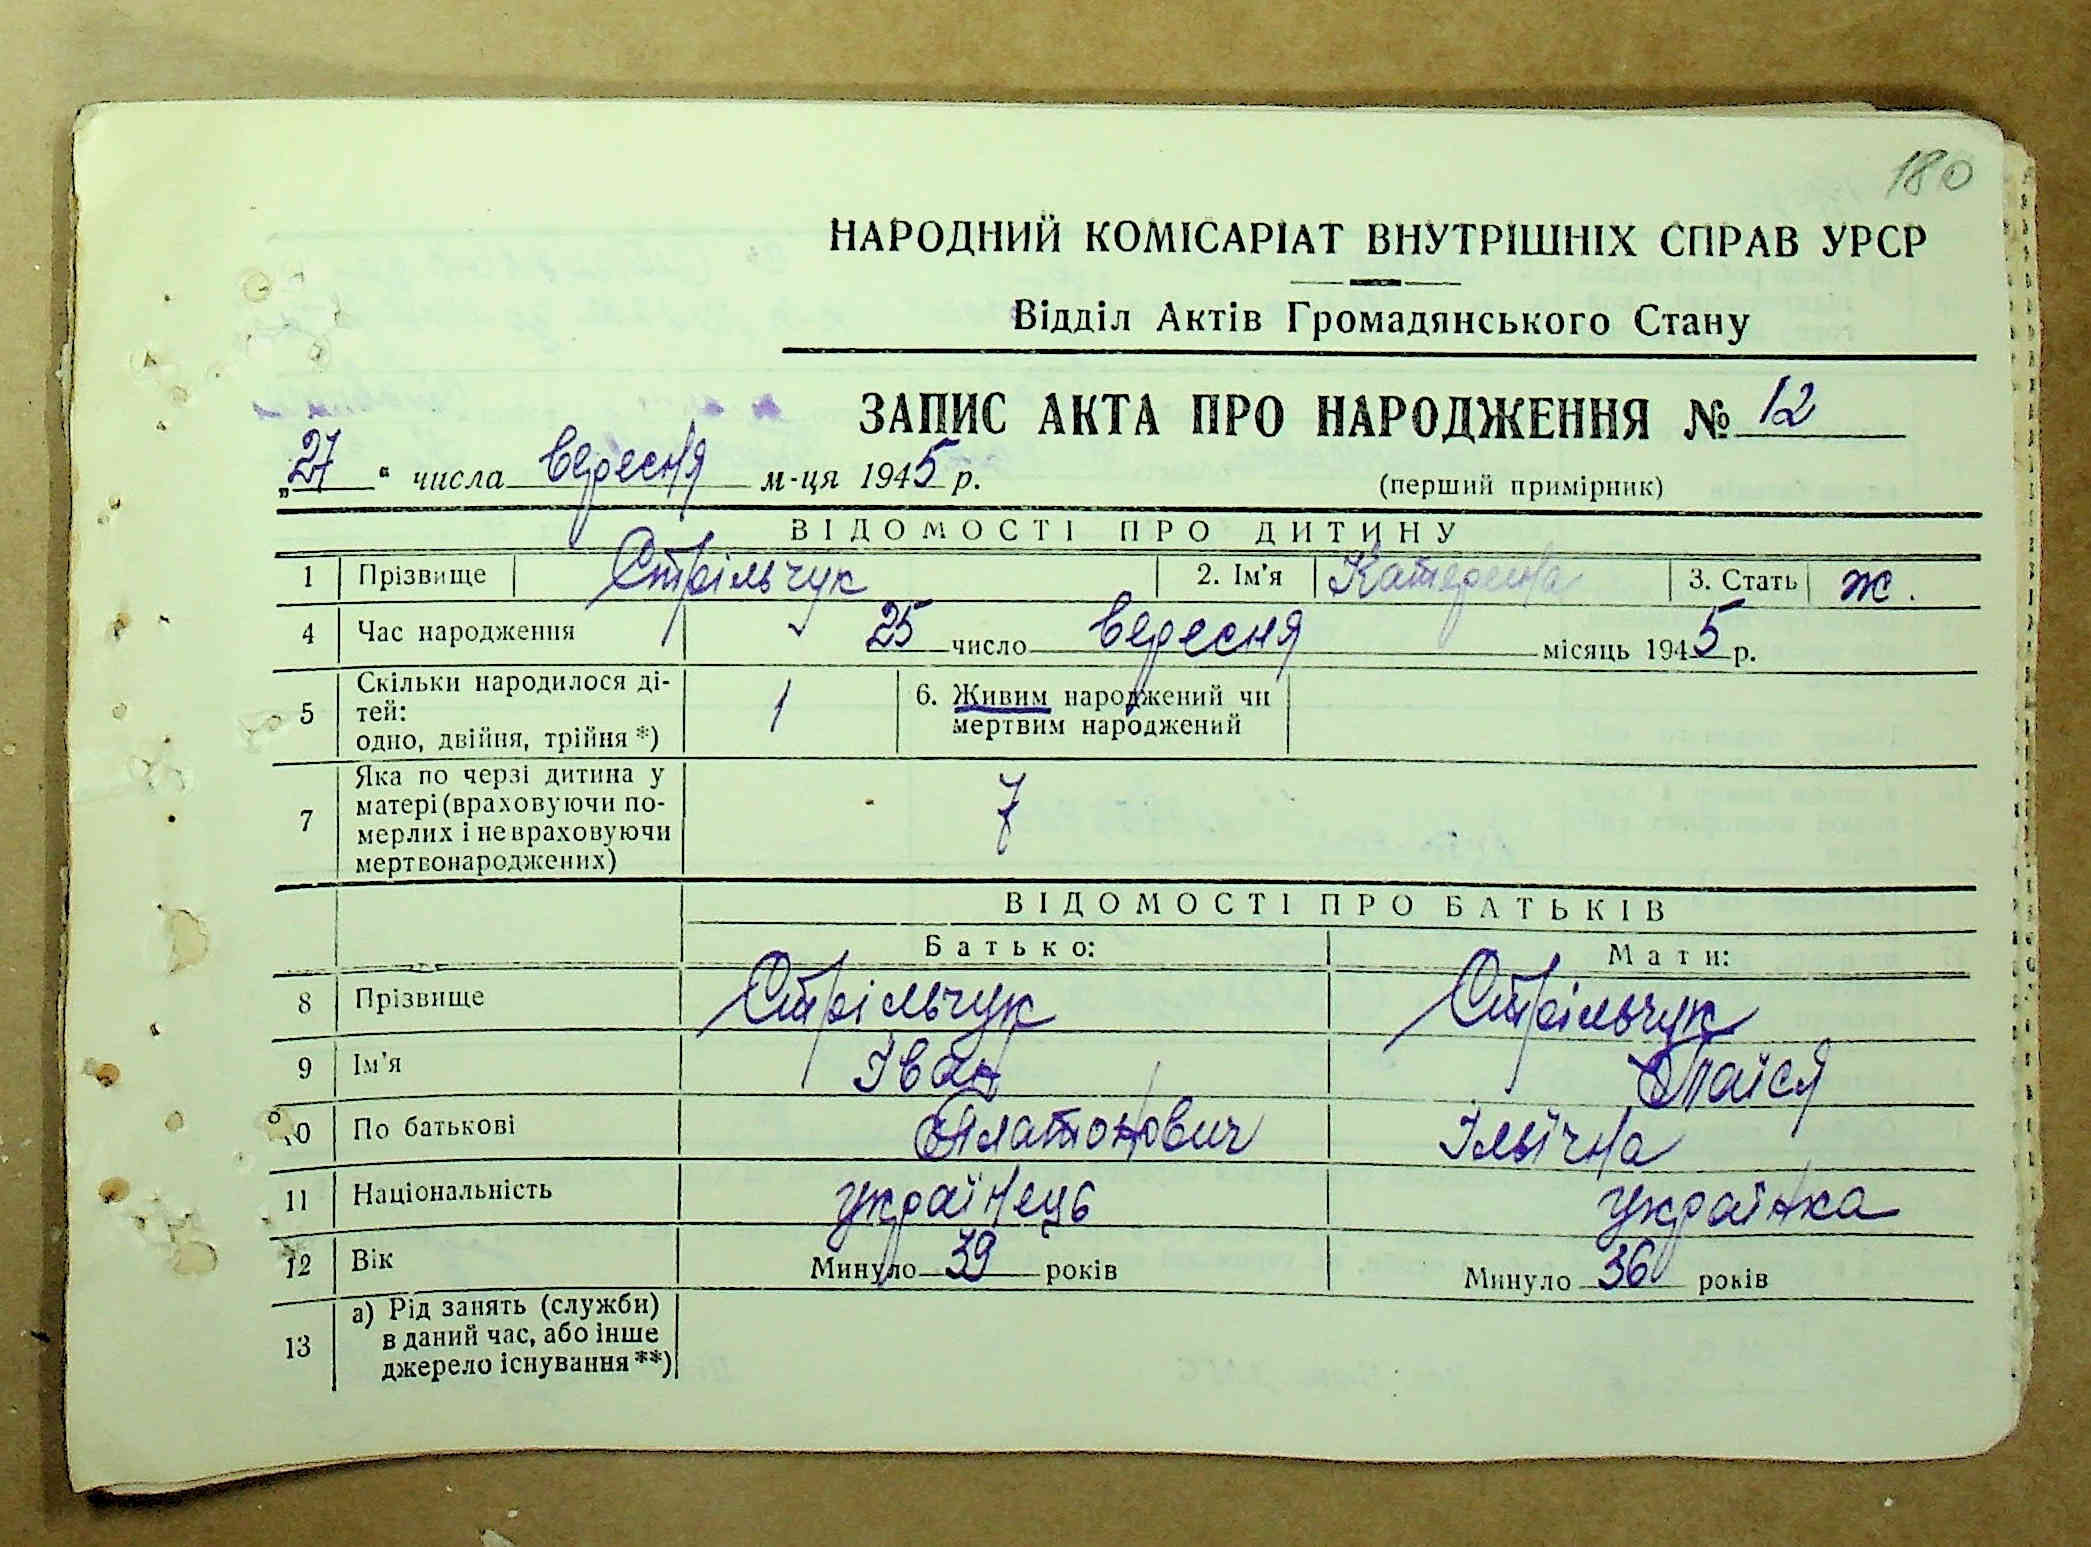 180
НАРОДНИЙ КОМІСАРІАТ ВНУТРІШНІХ СПРАВ УРСР
Відділ Актів Громадянського Стану
ЗАПИС АКТА ПРО НАРОДЖЕННЯ № 12
„27“ числа вересня м-ця 1945 р.
(перший примірник)
ВІДОМОСТІ ПРО ДИТИНУ
1 Прізвище Стрільчук 2. Ім'я Катерина 3. Стать ж.
4 Час народження 25 число вересня місяць 1945 р.
5 Скільки народилося ді-
тей:
одно, двійня, трійня *) 1
6. Живим народжений чи
мертвим народжений
7 Яка по черзі дитина у
матері (враховуючи по-
мерлих і не враховуючи
мертвонароджених) 7
ВІДОМОСТІ ПРО БАТЬКІВ
Батько: Мати:
8 Прізвище Стрільчук Стрільчук
9 Ім'я Іван Таїся
10 По батькові Платонович Ільїчна
11 Національність українець українка
12 Вік Минуло 39 років Минуло 36 років
13 а) Рід занять (служби)
в даний час, або інше
джерело існування **)